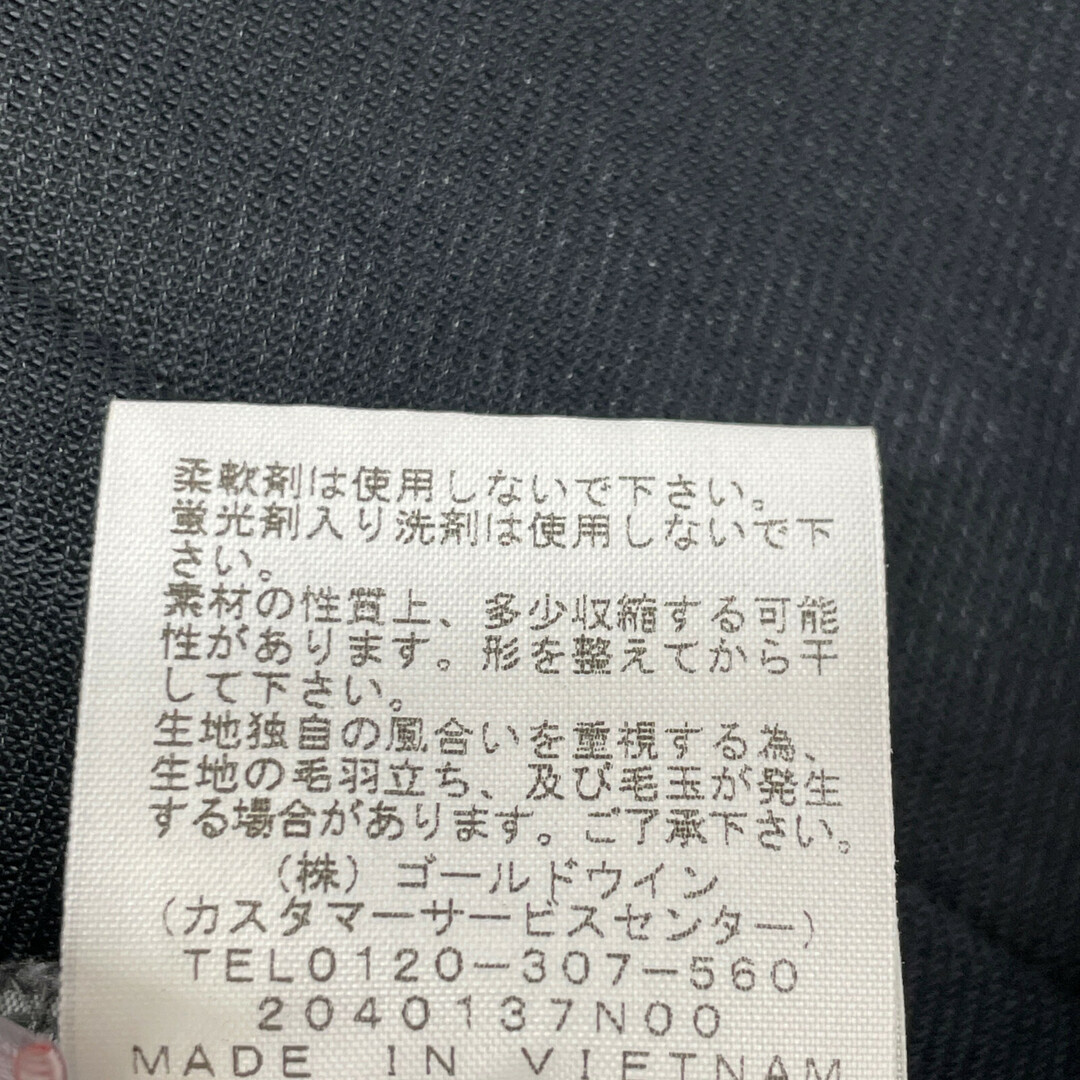 柔軟剤は使用しないで下さい。
蛍光剤入り洗剤は使用しないで下
さい。
素材の性質上、多少収縮する可能
性があります。形を整えてから干
して下さい。
生地独自の風合いを重視する為、
生地の毛羽立ち、及び毛玉が発生
する場合があります。ご了承下さい。
(株)ゴールドウイン
(カスタマーサービスセンター)
TEL0120-307-560
2040137N00
MADE IN VIETNAM